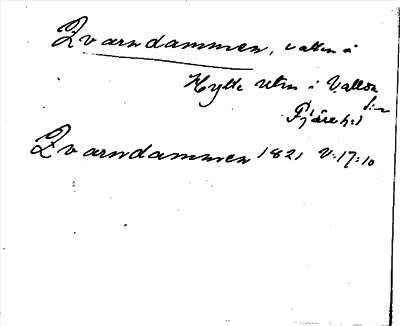 Qvarndammen, vatten i
Hylte utm i Valda
sn
Fjäre hd
Qvarndammen 1821 V:17:10